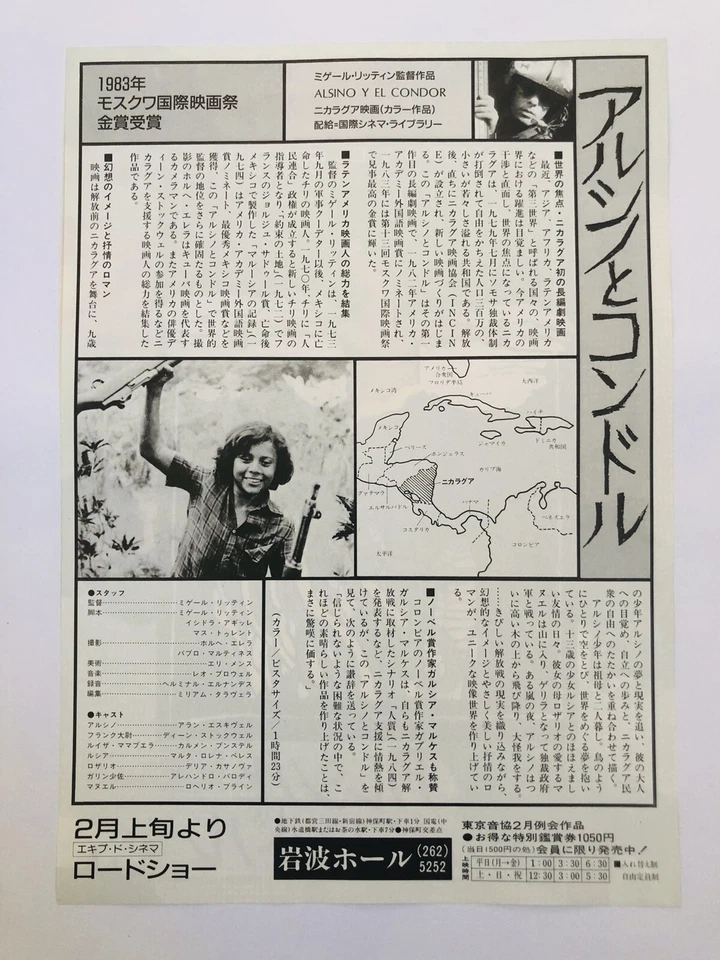 アルシノとコンドル
1983年
モスクワ国際映画祭
金賞受賞
ミゲール・リッティン監督作品
ALSINO Y EL CONDOR
ニカラグア映画(カラー作品)
配給=国際シネマ・ライブラリー
■世界の焦点・ニカラグア初の長編劇映画
最近、アジア、アフリカ、ラテン・アメリカ
などの「第三世界」と呼ばれる国々の、映画
界における躍進は目覚ましい。今アメリカの
干渉と直面し、世界の焦点になっているニカ
ラグアは、一九七九年七月にソモサ独裁体制
が打倒されて自由をかちえた人口三百万の、
小さいが若々しさ溢れる共和国である。解放
後、直ちにニカラグア映画協会(INCIN
E)が設立され、新しい映画づくりがはじま
る。この「アルシノとコンドル」はその第一
作目の長編劇映画で、一九八二年アメリカ・
アカデミー外国語映画賞にノミネートされ、
一九八三年には第十三回モスクワ国際映画祭
で見事最高の金賞に輝いた。
■ラテンアメリカ映画人の総力を結集
監督のミゲール・リッティンは、一九七三
年九月の軍事クーデター以後、メキシコに亡
命したチリの映画人。一九七〇年、チリに「人
民連合」政権が成立すると新しいチリ映画の
指導者となり「約束の土地」(一九七二)でフ
ランスのジョルジュ・サドゥール賞、亡命後
メキシコで製作した「マルシアの記録」(一
九七四)はアメリカ・アカデミー外国語映画
賞ノミネート、最優秀メキシコ映画賞などを
獲得、この「アルシノとコンドル」で世界的
監督の地位をさらに確固たるものとした。撮
影のホルヘ・エレラはキューバ映画を代表す
るカメラマンである。またアメリカの俳優デ
ィーン・ストックウェルの参加を得るなどニ
カラグアを支援する映画人の総力を結集した
作品である。
■幻想のイメージと抒情のロマン
映画は解放前のニカラグアを舞台に、九歳
アメリカ
合衆国
フロリダ半島
大西洋
メキシコ湾
キューバ
ハイチ
メキシコ
ジャマイカ
ドミニカ
共和国
ベリーズ
ホンジュラス
カリブ海
ニカラグア
グァテマラ
エルサルバドル
パナマ
コスタリカ
ベネズエラ
コロンビア
太平洋
の少年アルシノの夢と現実を追い、彼の大人
への目覚め、自立への歩みと、ニカラグア民
衆の自由へのたたかいを重ね合わせて描く。
アルシノ少年は祖母と二人暮し。鳥のよう
にひとりで空をとび、世界をめぐる夢を抱い
ている。十三歳の少女ルシアとのほほえまし
い友情の日々。彼女の母ロザリオの愛するマ
ヌエルは山に入り、ゲリラとなって独裁政府
軍と戦っている。ある嵐の夜、アルシノはつ
いに高い木の上から飛び降り、大怪我をする。
……きびしい解放戦の現実を織り込みながら、
幻想的なイメージとやさしく美しい抒情のロ
マンが、ユニークな映像世界を作り上げてい
る。
■ノーベル賞作家ガルシア・マルケスも称賛
コロンビアのノーベル賞作家ガブリエル・
ガルシア・マルケスは、自らもニカラグア解
放戦に取材したシナリオ「人質」(一九八四)
を発表するなど、ニカラグア支援に情熱を傾
けているが、この「アルシノとコンドル」を
見て、次のように讃辞を送っている。
「信じられないような困難な状況の中で、こ
れほどの素晴らしい作品を作り上げたことは、
まさに驚嘆に価する。」
(カラー/ビスタサイズ/1時間23分)
●スタッフ
監督……ミゲール・リッティン
脚本……ミゲール・リッティン
イシドラ・アギッレ
マス・トゥレント
撮影……ホルヘ・エレラ
パブロ・マルティネス
美術……エリ・メンス
音楽……レオ・ブロウェル
録音……ヘルミニル・エルナンデス
編集……ミリアム・タラヴェラ
●キャスト
アルシノ……アラン・エスキヴェル
フランク大尉……ディーン・ストックウェル
ルイザ・ママブエラ……カルメン・ブンステル
ルシア……マルタ・ロレナ・ペレス
ロザリオ……デリア・カサノヴァ
ガリン少佐……アレハンドロ・パロディ
マヌエル……ロヘリオ・ブライン
2月上旬より
エキプ・ド・シネマ
ロードショー
●地下鉄(都営三田線・新宿線)神保町駅・下車1分 国電(中
央線)水道橋駅またはお茶の水駅・下車7分●神保町交差点
岩波ホール (262)5252
東京音協2月例会作品
●お得な特別鑑賞券1050円
(当日1500円の処)会員に限り発売中!
上映時間
平日(月→金) 1:00 3:30 6:30
土・日・祝 12:30 3:00 5:30
■入れ替え制
自由定員制